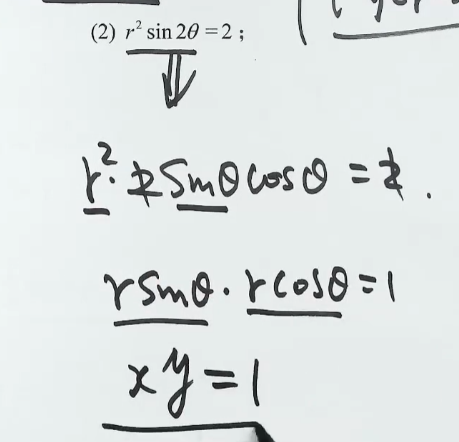 (2) r² sin 2θ = 2 ;
⇓
r² · 2 sinθ cosθ = 2 .
r sinθ · r cosθ = 1
xy = 1